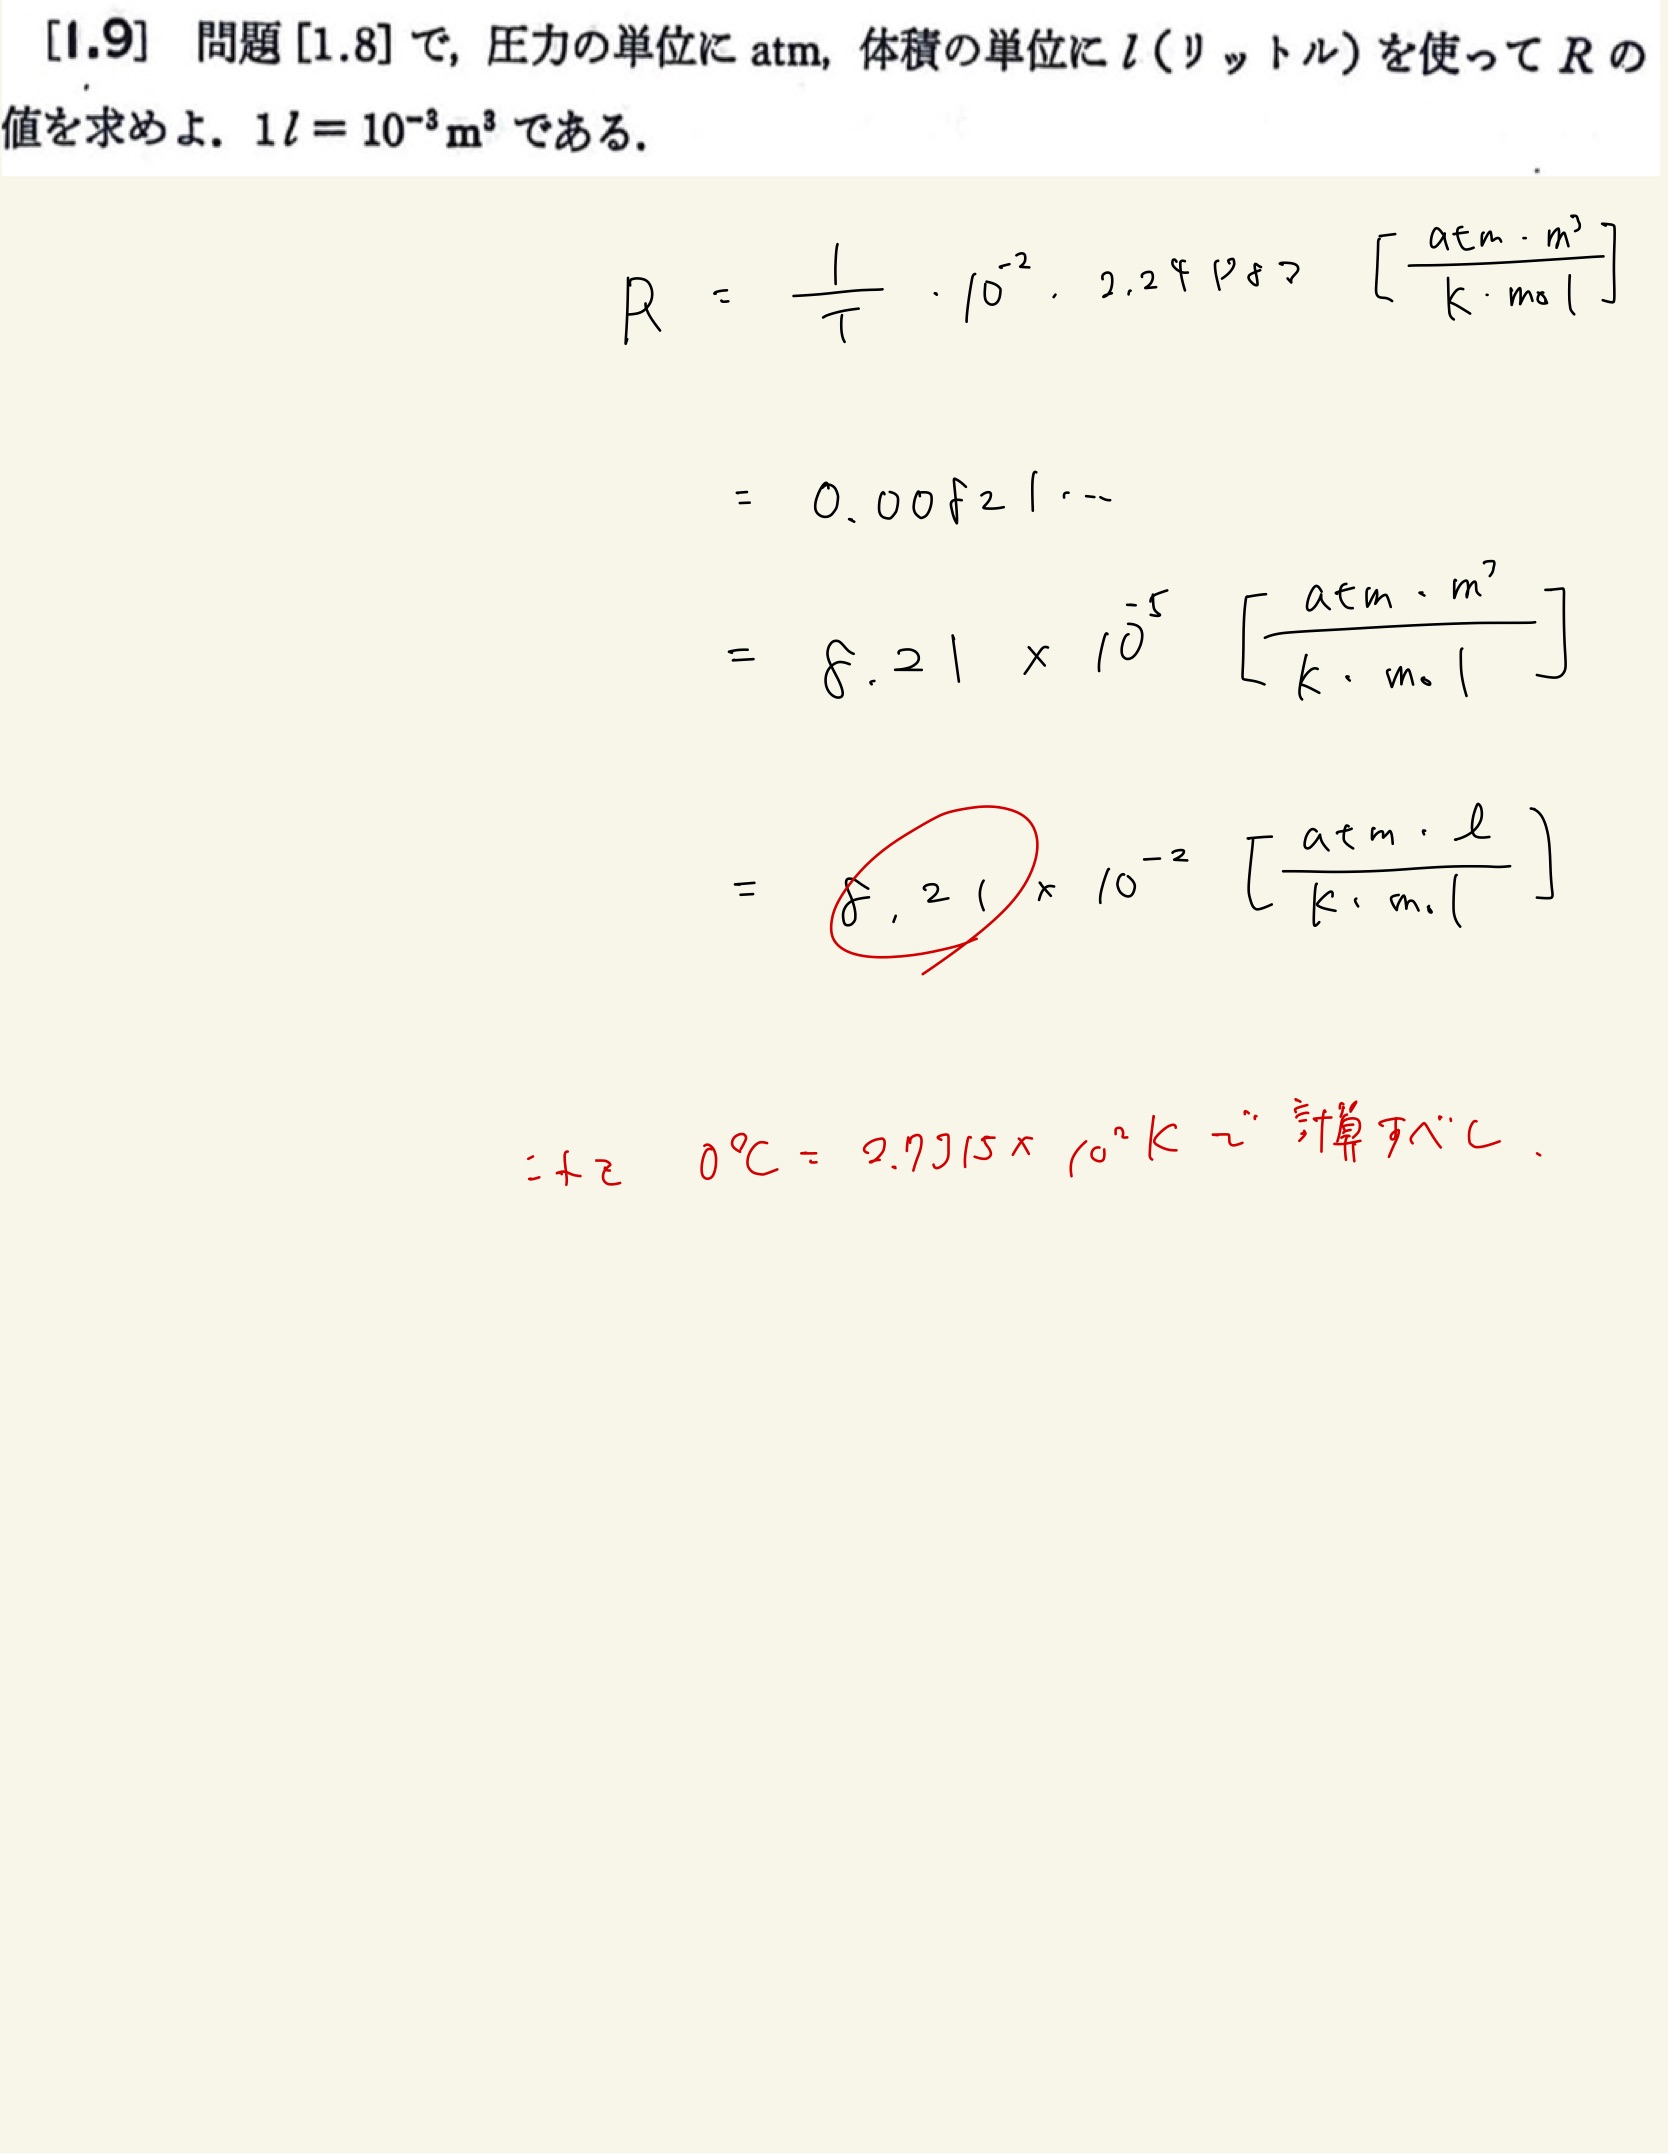 [1.9] 問題[1.8]で，圧力の単位に atm，体積の単位に l（リットル）を使って R の
値を求めよ．1 l = 10⁻³ m³ である．
R = 1/T · 10⁻² · 2.24 [atm · m³ / K · mol]
= 0.00821...
= 8.21 × 10⁻⁵ [atm · m³ / K · mol]
= 8.21 × 10⁻² [atm · l / K · mol]
0°C = 2.7315 × 10² K で 計算すべし．